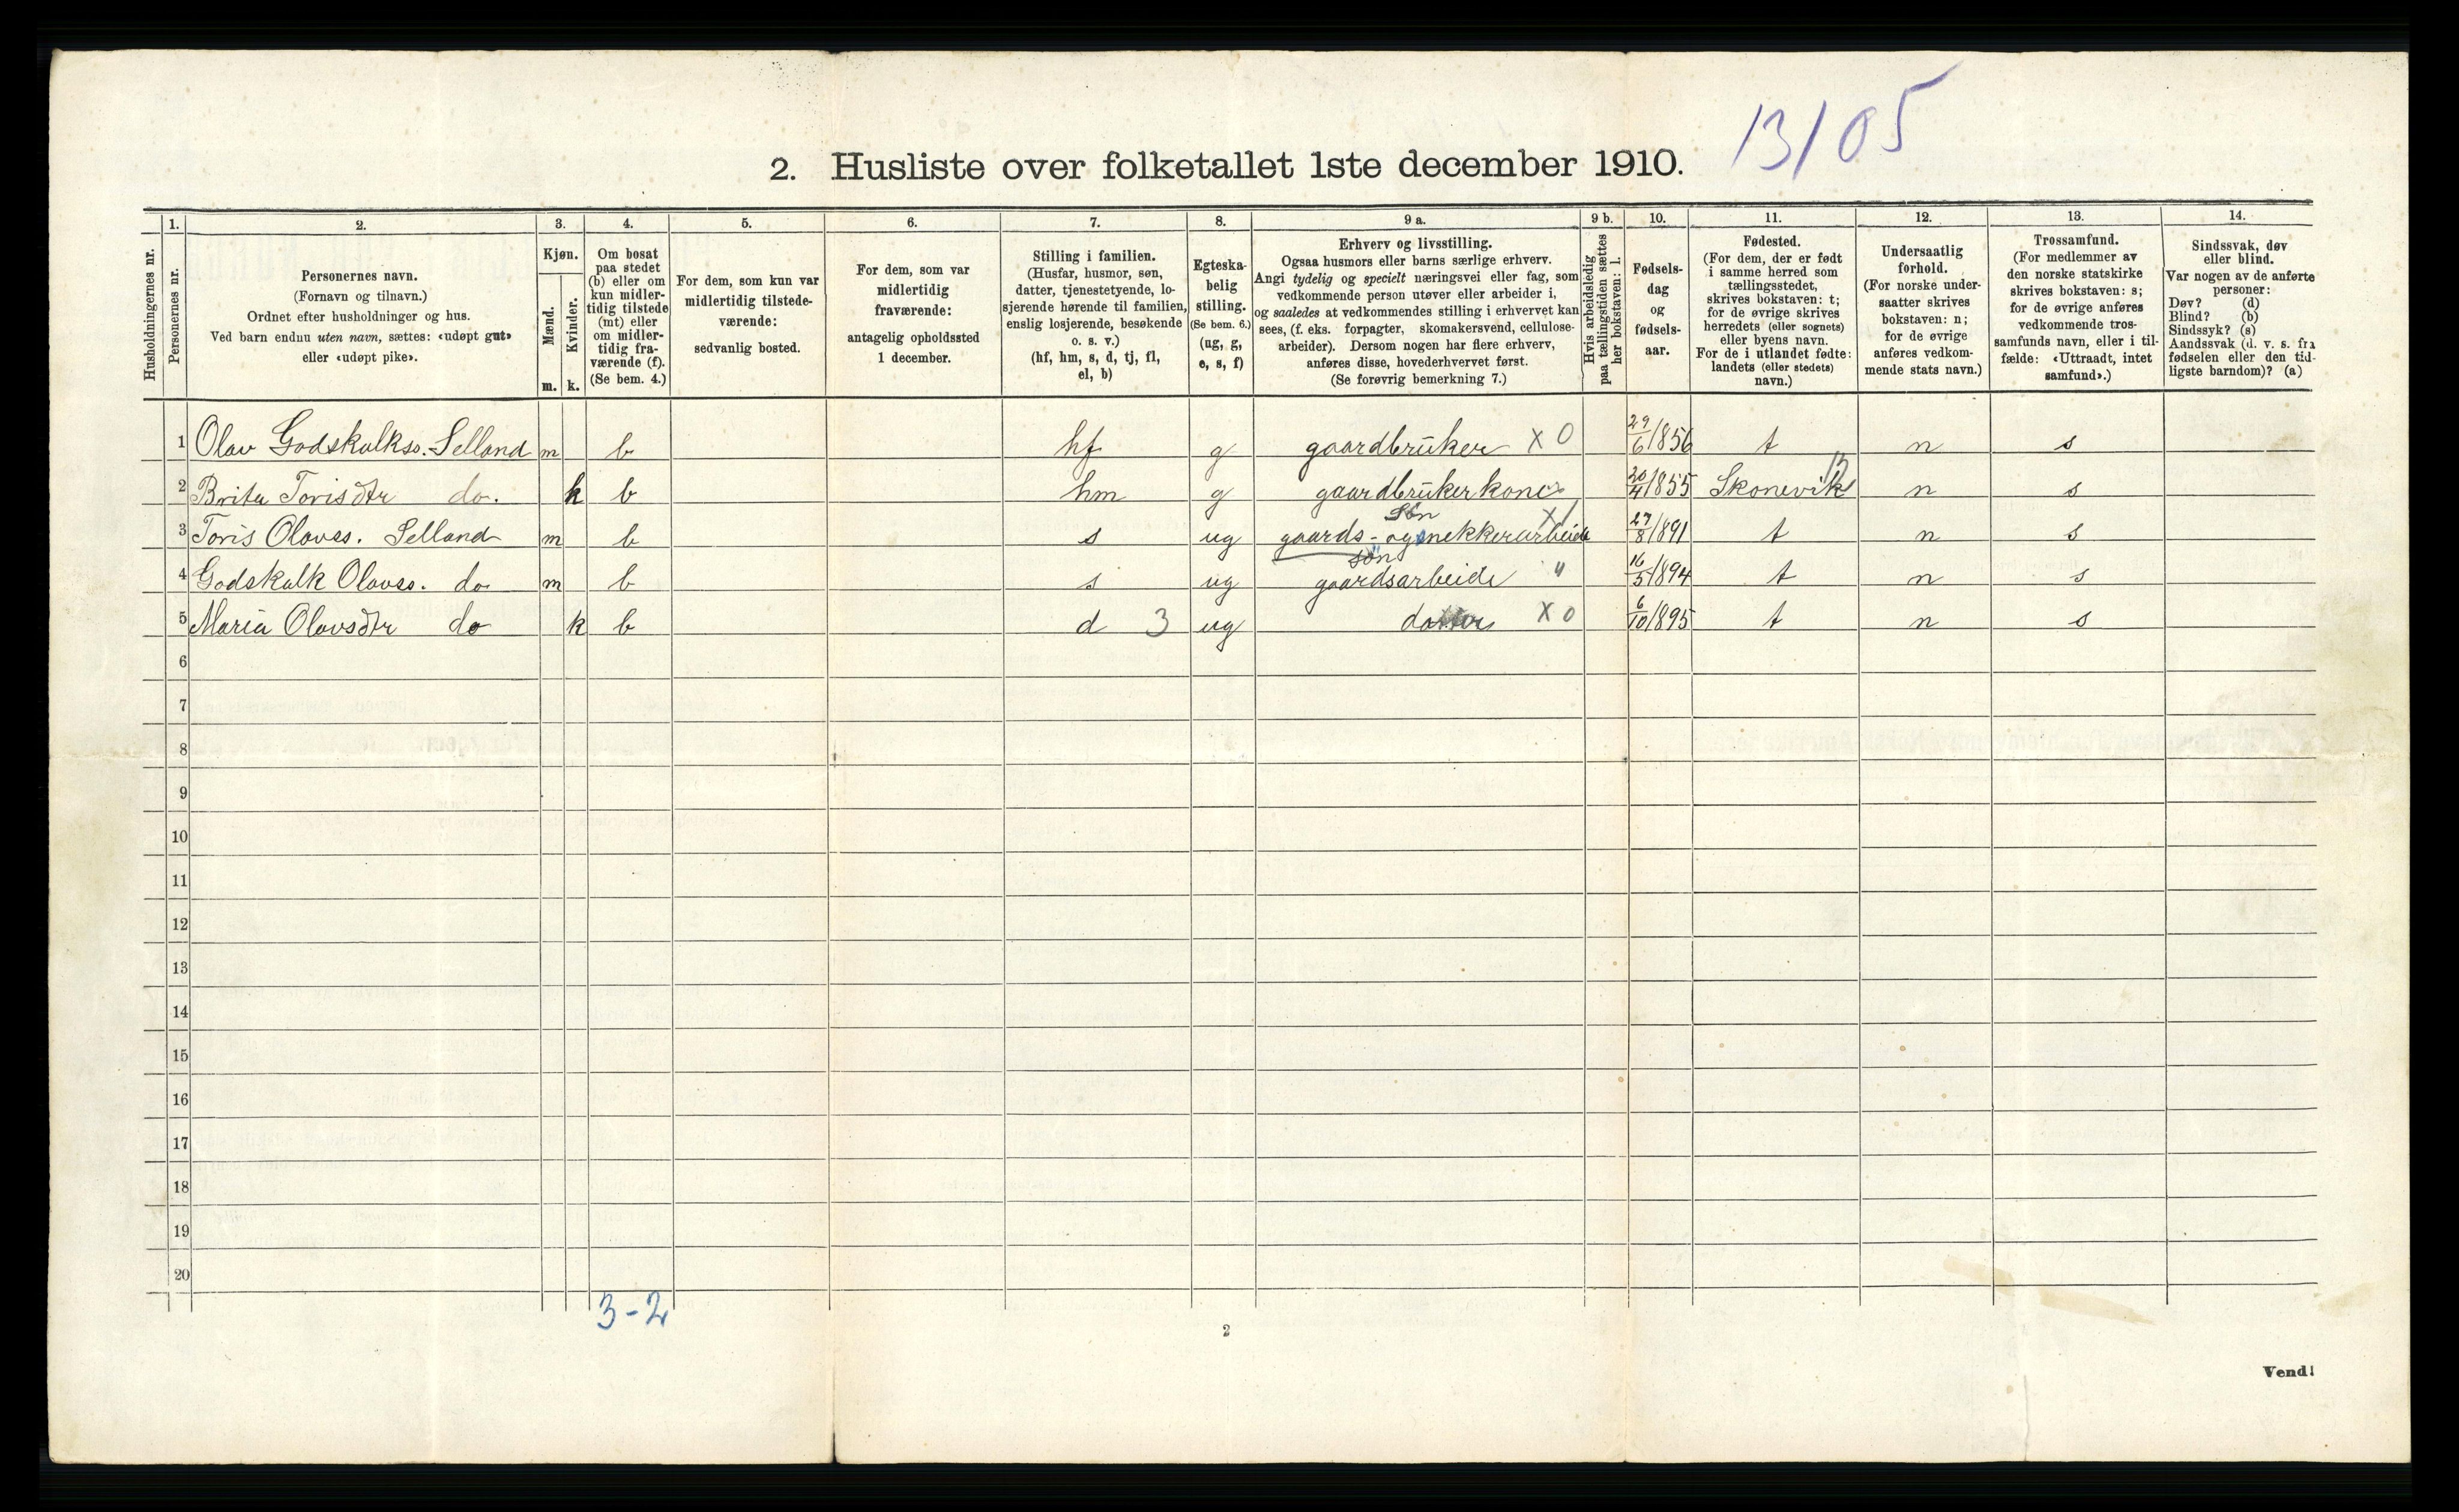 13/05
2. Husliste over folketallet 1ste december 1910.
Husholdningernes nr.
1.
Personernes nr.
2.
Personernes navn.
(Fornavn og tilnavn.)
Ordnet efter husholdninger og hus.
Ved barn endnu uten navn, sættes: «udøpt gut»
eller «udøpt pike».
3.
Kjøn.
Mænd.
m.
Kvinder.
k.
4.
Om bosat
paa stedet
(b) eller om
kun midler-
tidig tilstede
(mt) eller
om midler-
tidig fra-
værende (f).
(Se bem. 4.)
5.
For dem, som kun var
midlertidig tilstede-
værende:
sedvanlig bosted.
6.
For dem, som var
midlertidig
fraværende:
antagelig opholdssted
1 december.
7.
Stilling i familien.
(Husfar, husmor, søn,
datter, tjenestetyende, lo-
sjerende hørende til familien,
enslig losjerende, besøkende
o. s. v.)
(hf, hm, s, d, tj, fl,
el, b)
8.
Egteska-
belig
stilling.
(Se bem. 6.)
(ug, g,
e, s, f)
9 a.
Erhverv og livsstilling.
Ogsaa husmors eller barns særlige erhverv.
Angi tydelig og specielt næringsvei eller fag, som
vedkommende person utøver eller arbeider i,
og saaledes at vedkommendes stilling i erhvervet kan
sees, (f. eks. forpagter, skomakersvend, cellulose-
arbeider). Dersom nogen har flere erhverv,
anføres disse, hovederhvervet først.
(Se forøvrig bemerkning 7.)
9 b.
Hvis arbeidsledig
paa tællingstiden sættes
her bokstaven: l.
10.
Fødsels-
dag
og
fødsels-
aar.
11.
Fødested.
(For dem, der er født
i samme herred som
tællingsstedet,
skrives bokstaven: t;
for de øvrige skrives
herredets (eller sognets)
eller byens navn.
For de i utlandet fødte:
landets (eller stedets)
navn.)
12.
Undersaatlig
forhold.
(For norske under-
saatter skrives
bokstaven: n;
for de øvrige
anføres vedkom-
mende stats navn.)
13.
Trossamfund.
(For medlemmer av
den norske statskirke
skrives bokstaven: s;
for de øvrige anføres
vedkommende tros-
samfunds navn, eller i til-
fælde: «Uttraadt, intet
samfund».)
14.
Sindssvak, døv
eller blind.
Var nogen av de anførte
personer:
Døv? (d)
Blind? (b)
Sindssyk? (s)
Aandssvak (d. v. s. fra
fødselen eller den tid-
ligste barndom)? (a)
1 Olav Godskalkss. Selland m b hf g gaardbruker X 0 29/6 1856 t n s
2 Brita Torisdtr do. k b hm g gaardbrukerkone 20/4 1855 Skonevik 13 n s
søn
3 Toris Olavss. Selland m b s ug gaards- og snekkerarbeide X 1 27/8 1891 t n s
søn
4 Godskalk Olavss. do m b s ug gaardsarbeide " 16/5 1894 t n s
5 Maria Olavsdtr do k b d 3 ug datter X 0 6/10 1895 t n s
6
7
8
9
10
11
12
13
14
15
16
17
18
19
20
3-2
2
Vend!